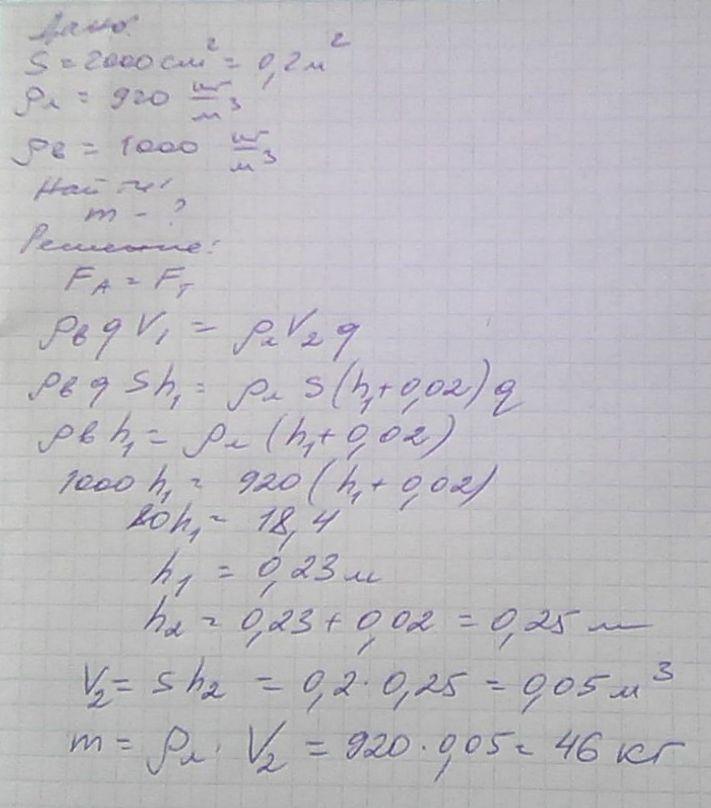 Дано:
S = 2000 см² = 0,2 м²
ρл = 920 кг/м³
ρв = 1000 кг/м³
Найти:
m - ?
Решение:
FA = FT
ρв g V₁ = ρл V₂ g
ρв g S h₁ = ρл S (h₁ + 0,02) g
ρв h₁ = ρл (h₁ + 0,02)
1000 h₁ = 920 (h₁ + 0,02)
80 h₁ = 18,4
h₁ = 0,23 м
h₂ = 0,23 + 0,02 = 0,25 м
V₂ = S h₂ = 0,2 · 0,25 = 0,05 м³
m = ρл · V₂ = 920 · 0,05 = 46 кг